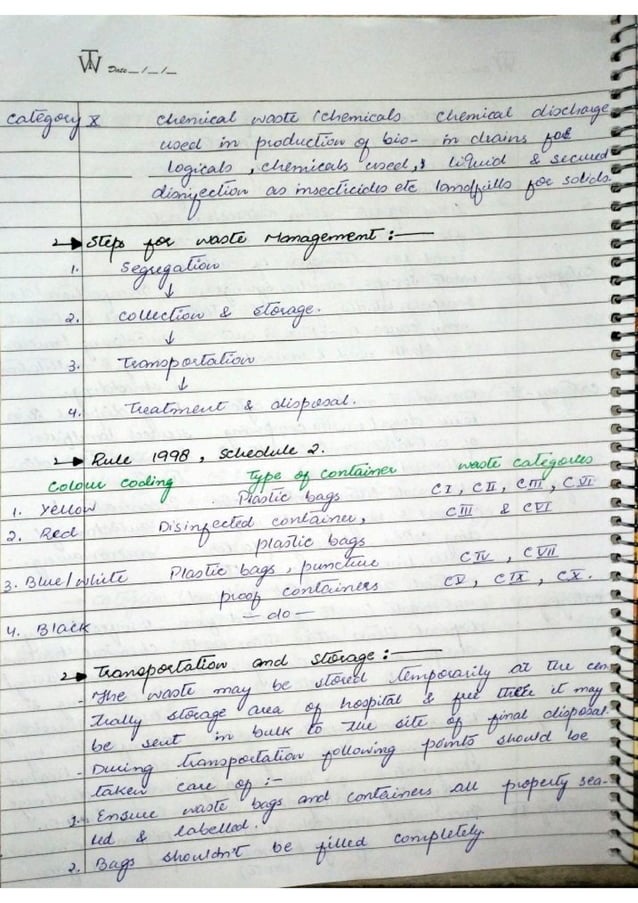 TW Date _ / _ / _
category X chemical waste (chemicals chemical discharge
used in production of bio- in drains for
logicals, chemicals used, liquid & secured
disinfection as insecticides etc landfills for solids.
2 → Steps for waste Management :—
1. Segregation
↓
2. collection & Storage.
↓
3. Transportation
↓
4. Treatment & disposal.
2 → Rule 1998, Schedule 2.
colour coding Type of container waste categories
1. Yellow Plastic bags CI, CII, CIII, CVI
2. Red Disinfected container, CIII & CVI
plastic bags
3. Blue/white Plastic bags, puncture CIV, CVII
proof containers CV, CIX, CX.
4. Black — do —
2 → Transportation and storage :—
- The waste may be stored temporarily at the cen
trally storage area of hospital & there it may
be sent in bulk to the site of final disposal.
- During transportation following points should be
taken care of :-
1. Ensure waste bags and containers all property sea-
led & labelled.
2. Bags shouldn't be filled completely.